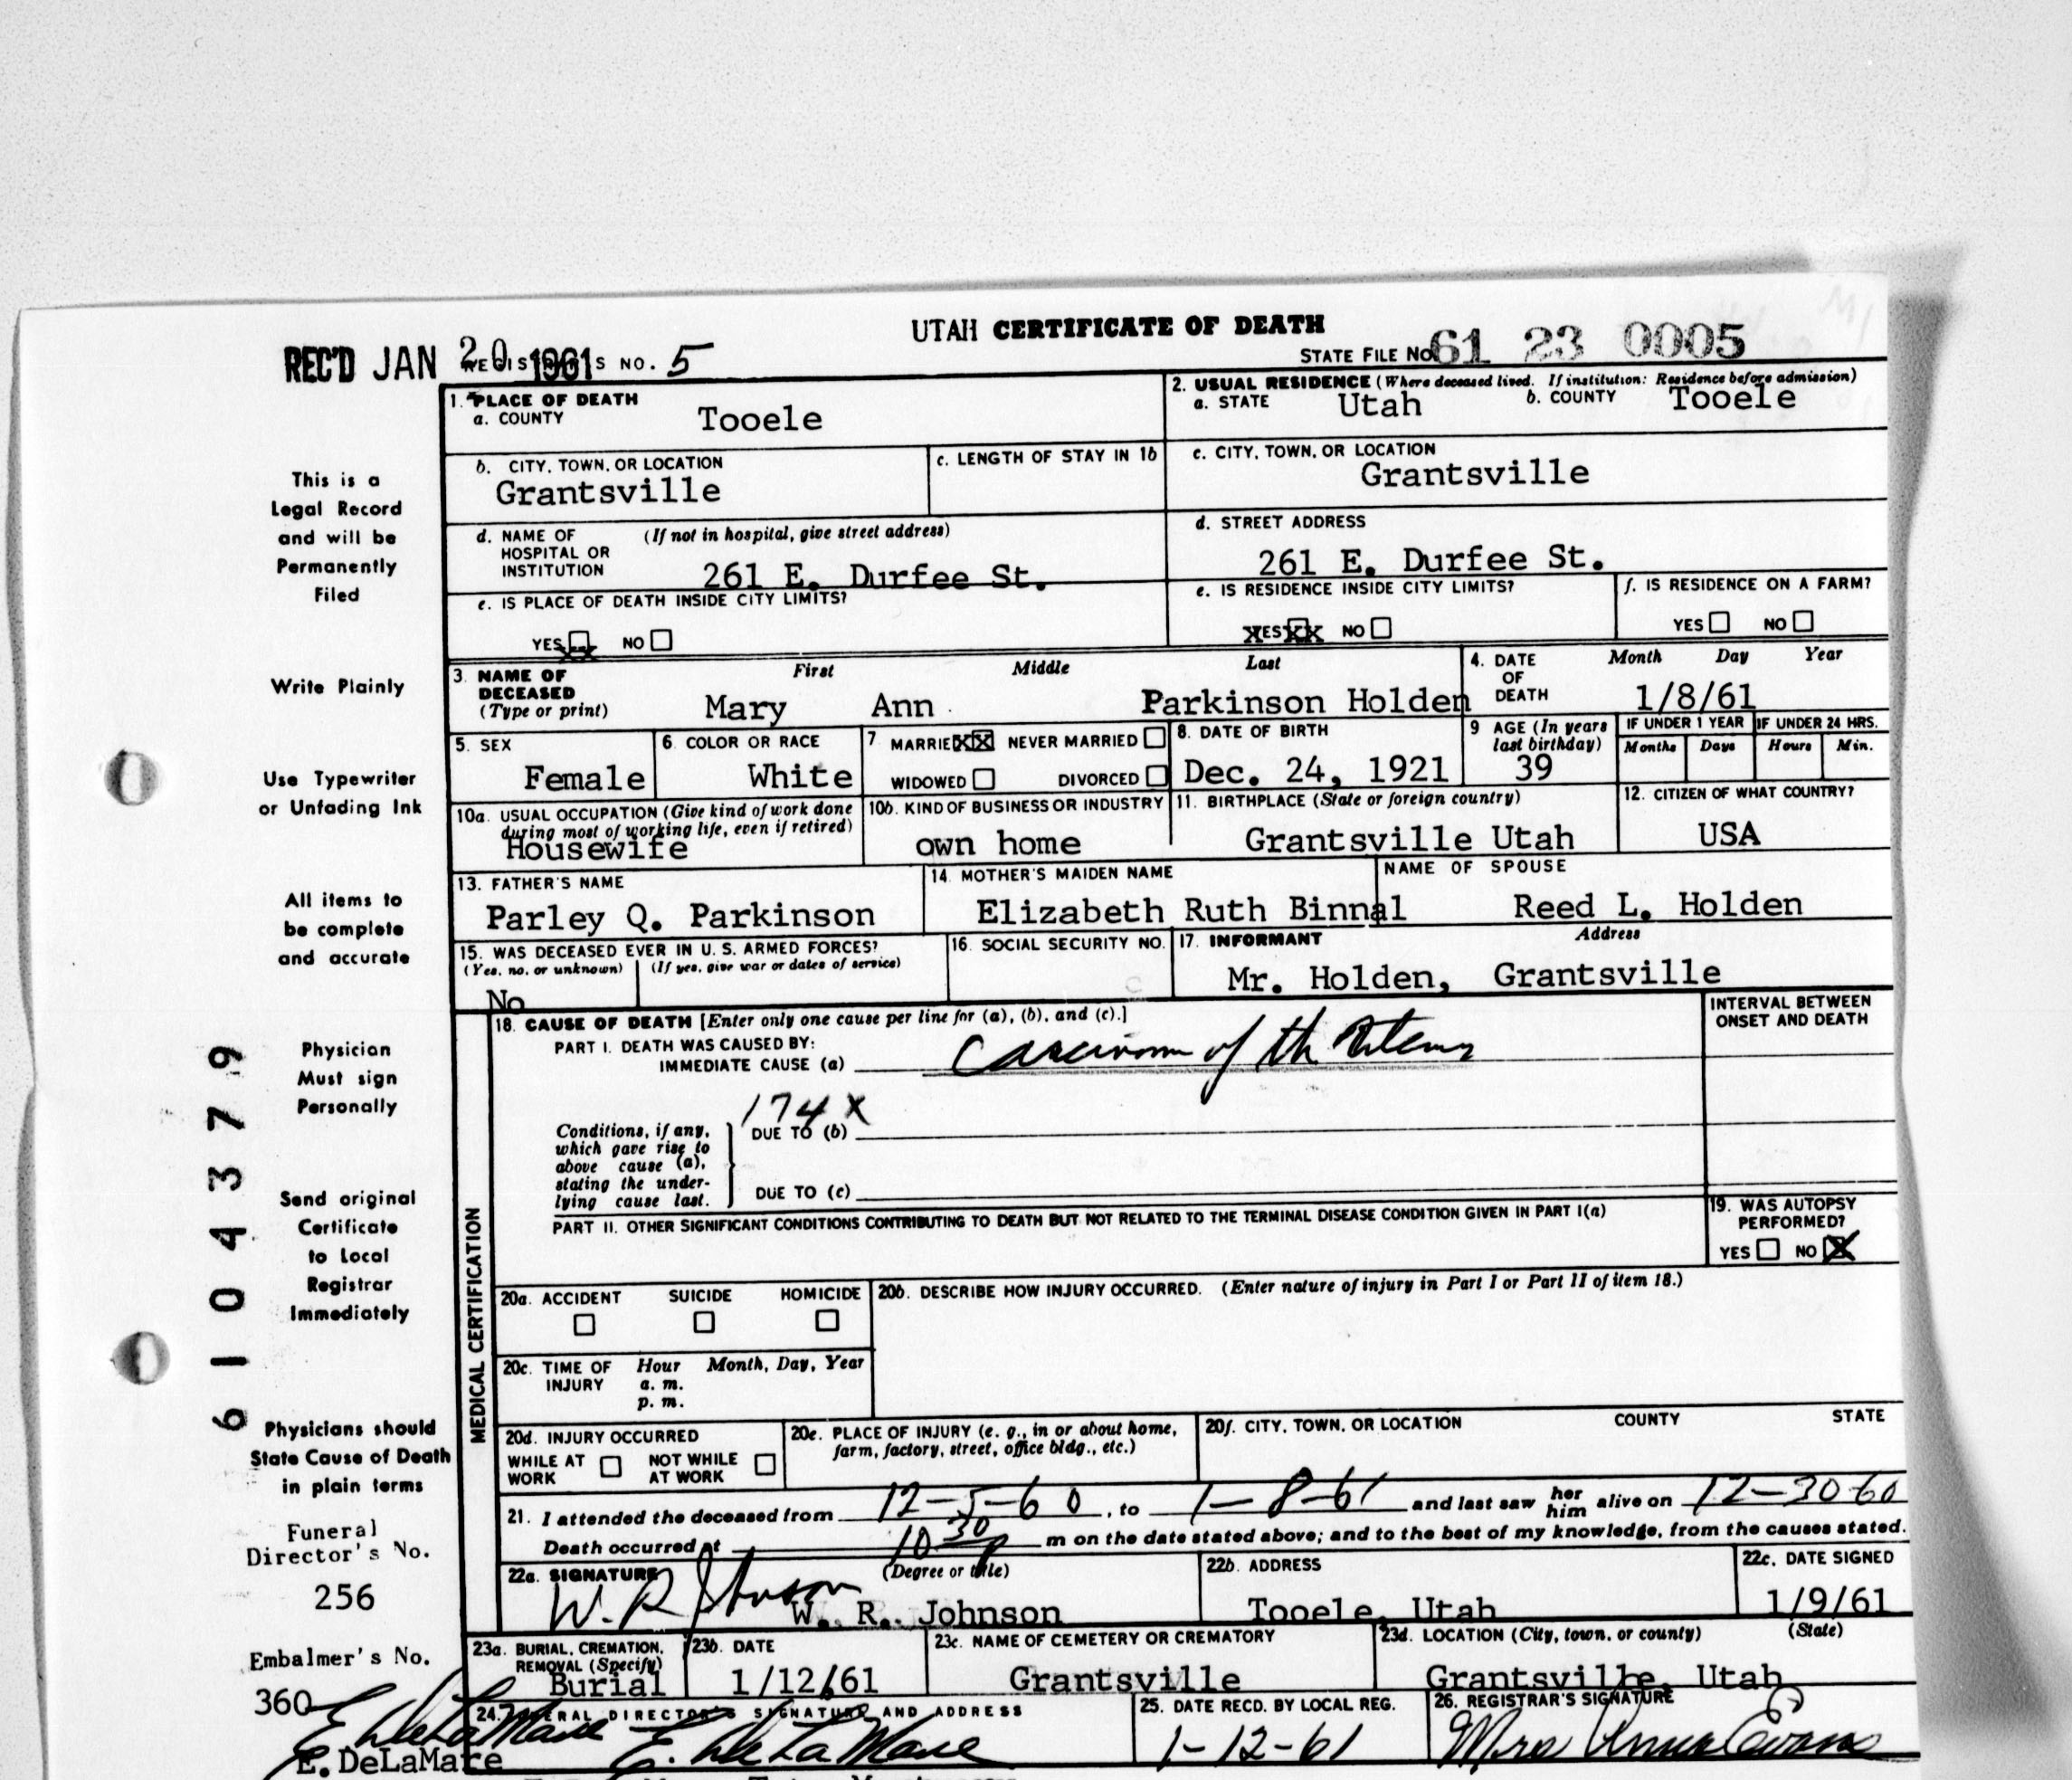 UTAH CERTIFICATE OF DEATH
REC'D JAN 20 1961 S NO. 5
STATE FILE NO. 61 23 0005
1. PLACE OF DEATH
a. COUNTY Tooele
2. USUAL RESIDENCE (Where deceased lived. If institution: Residence before admission)
a. STATE Utah b. COUNTY Tooele
b. CITY, TOWN, OR LOCATION
Grantsville
c. LENGTH OF STAY IN 1b
c. CITY, TOWN, OR LOCATION
Grantsville
d. NAME OF HOSPITAL OR INSTITUTION (If not in hospital, give street address)
261 E. Durfee St.
d. STREET ADDRESS
261 E. Durfee St.
e. IS PLACE OF DEATH INSIDE CITY LIMITS?
YES XX NO
e. IS RESIDENCE INSIDE CITY LIMITS?
XESXX NO
f. IS RESIDENCE ON A FARM?
YES NO
3. NAME OF DECEASED (Type or print)
First Middle Last
Mary Ann Parkinson Holden
4. DATE OF DEATH Month Day Year
1/8/61
5. SEX
Female
6. COLOR OR RACE
White
7 MARRIEXX NEVER MARRIED
WIDOWED DIVORCED
8. DATE OF BIRTH
Dec. 24, 1921
9 AGE (In years last birthday)
39
IF UNDER 1 YEAR IF UNDER 24 HRS.
Months Days Hours Min.
10a. USUAL OCCUPATION (Give kind of work done during most of working life, even if retired)
Housewife
10b. KIND OF BUSINESS OR INDUSTRY
own home
11. BIRTHPLACE (State or foreign country)
Grantsville Utah
12. CITIZEN OF WHAT COUNTRY?
USA
13. FATHER'S NAME
Parley Q. Parkinson
14. MOTHER'S MAIDEN NAME
Elizabeth Ruth Binnal
NAME OF SPOUSE
Reed L. Holden
15. WAS DECEASED EVER IN U. S. ARMED FORCES?
(Yes, no, or unknown) (If yes, give war or dates of service)
No
16. SOCIAL SECURITY NO.
17. INFORMANT Address
Mr. Holden, Grantsville
MEDICAL CERTIFICATION
18. CAUSE OF DEATH [Enter only one cause per line for (a), (b), and (c).]
PART I. DEATH WAS CAUSED BY:
IMMEDIATE CAUSE (a) Carcinoma of the Uterus
INTERVAL BETWEEN ONSET AND DEATH
174 X
Conditions, if any, which gave rise to above cause (a), stating the underlying cause last.
DUE TO (b)
DUE TO (c)
PART II. OTHER SIGNIFICANT CONDITIONS CONTRIBUTING TO DEATH BUT NOT RELATED TO THE TERMINAL DISEASE CONDITION GIVEN IN PART I(a)
19. WAS AUTOPSY PERFORMED?
YES NO X
20a. ACCIDENT SUICIDE HOMICIDE
20b. DESCRIBE HOW INJURY OCCURRED. (Enter nature of injury in Part I or Part II of item 18.)
20c. TIME OF INJURY Hour Month, Day, Year
a. m.
p. m.
20d. INJURY OCCURRED
WHILE AT WORK NOT WHILE AT WORK
20e. PLACE OF INJURY (e. g., in or about home, farm, factory, street, office bldg., etc.)
20f. CITY, TOWN, OR LOCATION COUNTY STATE
21. I attended the deceased from 12-5-60, to 1-8-61 and last saw her him alive on 12-30-60
Death occurred at 10 30 p m on the date stated above; and to the best of my knowledge, from the causes stated.
22a. SIGNATURE (Degree or title)
W. R. Johnson W. R. Johnson
22b. ADDRESS
Tooele, Utah
22c. DATE SIGNED
1/9/61
23a. BURIAL, CREMATION, REMOVAL (Specify)
Burial
23b. DATE
1/12/61
23c. NAME OF CEMETERY OR CREMATORY
Grantsville
23d. LOCATION (City, town, or county) (State)
Grantsville, Utah
24. FUNERAL DIRECTOR'S SIGNATURE AND ADDRESS
E. DeLaMare
25. DATE RECD. BY LOCAL REG.
1-12-61
26. REGISTRAR'S SIGNATURE
Mrs Anna Evans
This is a
Legal Record
and will be
Permanently
Filed
Write Plainly
Use Typewriter
or Unfading Ink
All items to
be complete
and accurate
Physician
Must sign
Personally
Send original
Certificate
to Local
Registrar
Immediately
Physicians should
State Cause of Death
in plain terms
Funeral
Director's No.
256
Embalmer's No.
360
E DeLaMare
E. DeLaMare
6 1 0 4 3 7 9